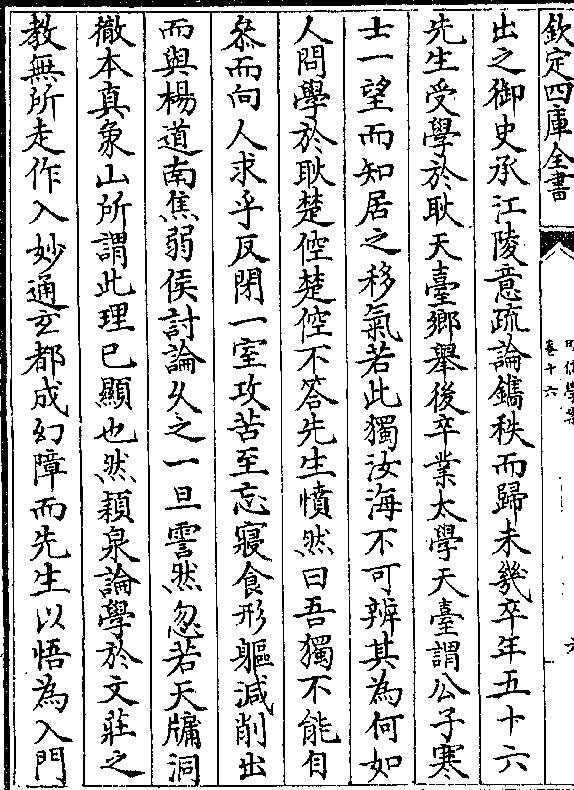 欽定四庫全書
明儒學案
卷十六
出之御史承江陵意疏論鐫秩而歸未幾卒年五十六
先生受學於耿天臺鄉舉後卒業太學天臺謂公子寒
士一望而知居之移氣若此獨汝海不可辨其為何如
人問學於耿楚倥楚倥不答先生憤然曰吾獨不能自
叅而向人求乎反閉一室攻苦至忘寢食形軀減削出
而與楊道南焦弱侯討論乆之一旦霅然忽若天牖洞
徹本真象山所謂此理已顯也然穎泉論學於文莊之
教無所走作入妙通𤣥都成幻障而先生以悟為入門